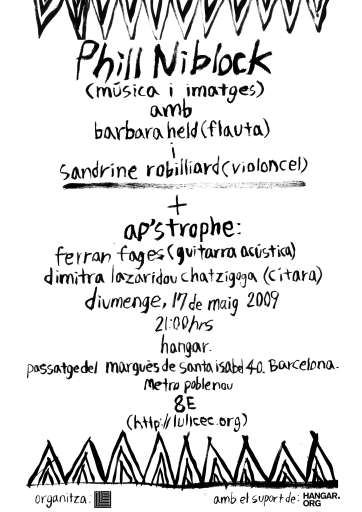 Phill Niblock
(música i imatges)
amb
barbara held (flauta)
i
sandrine robilliard (violoncel)
+
ap'strophe:
ferran fages (guitarra acústica)
dimitra lazaridou chatzigoga (citara)
diumenge, 17 de maig 2009
21:00hrs
hangar.
passatge del marquès de santa isabel 40. Barcelona.
Metro poblenou
8€
(http://lulicec.org)
organitza:
amb el suport de: HANGAR.
ORG